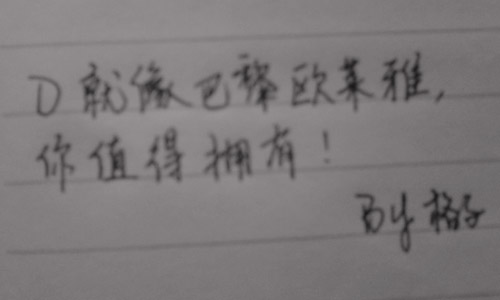 D就像巴黎欧莱雅,
你值得拥有!
By 格子